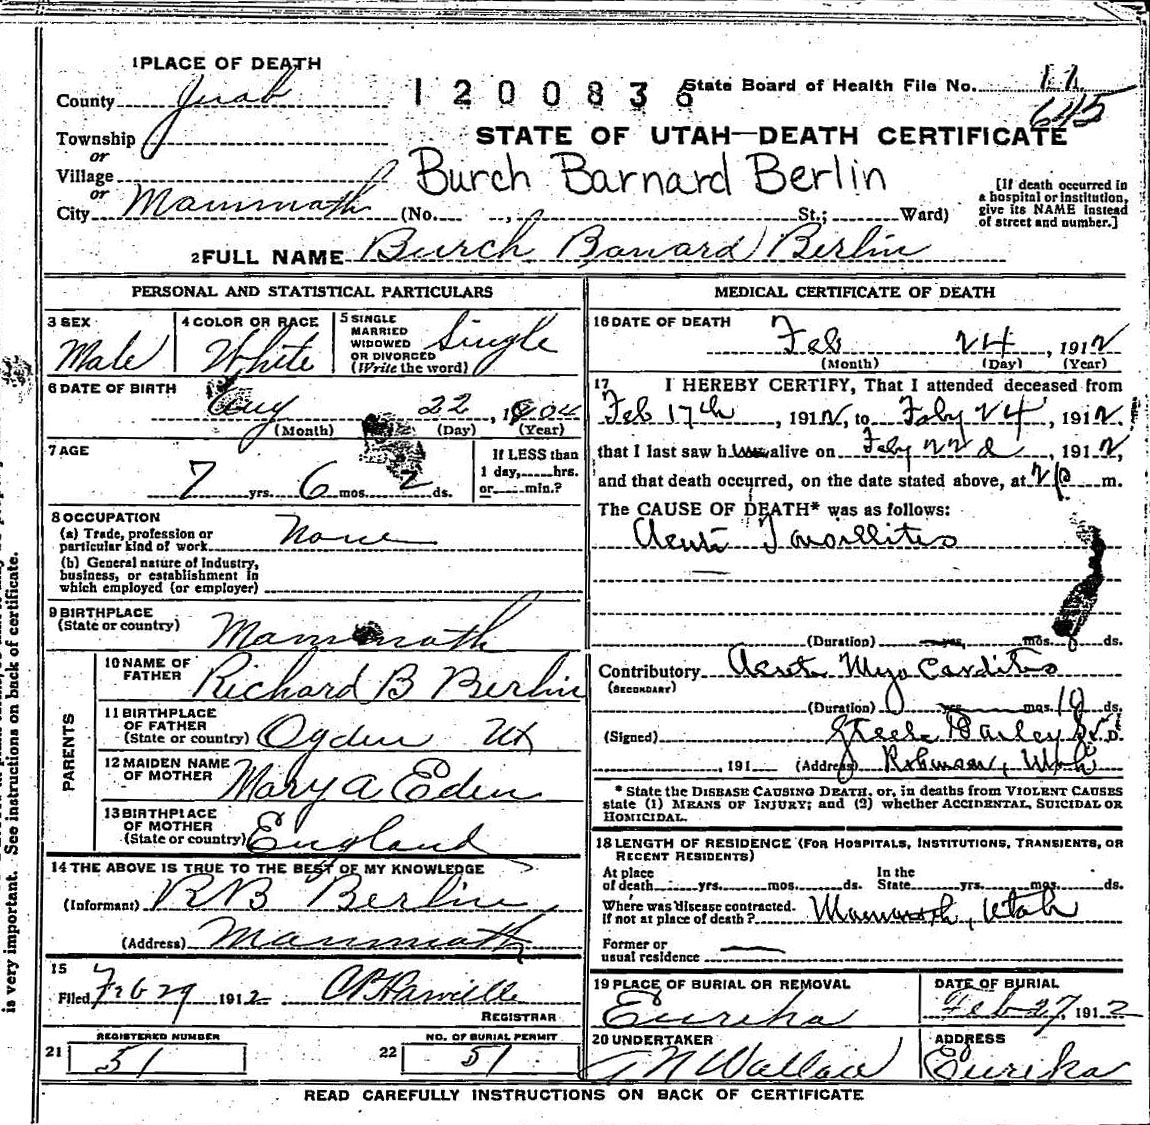 1 PLACE OF DEATH
County Juab
1200836
State Board of Health File No. 11
645
Township
or
STATE OF UTAH—DEATH CERTIFICATE
Village
or
Burch Barnard Berlin
City Mammoth (No. , St.; Ward)
[If death occurred in
a hospital or institution,
give its NAME instead
of street and number.]
2 FULL NAME Burch Banard Berlin
PERSONAL AND STATISTICAL PARTICULARS
3 SEX
Male
4 COLOR OR RACE
White
5 SINGLE
MARRIED
WIDOWED
OR DIVORCED
(Write the word)
Single
6 DATE OF BIRTH
Aug 22, 1904
(Month) (Day) (Year)
7 AGE
7 yrs. 6 mos. 2 ds.
If LESS than
1 day, hrs.
or min.?
8 OCCUPATION
(a) Trade, profession or
particular kind of work None
(b) General nature of Industry,
business, or establishment in
which employed (or employer)
9 BIRTHPLACE
(State or country) Mammoth
PARENTS
10 NAME OF
FATHER Richard B Berlin
11 BIRTHPLACE
OF FATHER
(State or country) Ogden Ut
12 MAIDEN NAME
OF MOTHER Mary A Eden
13 BIRTHPLACE
OF MOTHER
(State or country) England
14 THE ABOVE IS TRUE TO THE BEST OF MY KNOWLEDGE
(Informant) R B Berlin
(Address) Mammoth
15
Filed Feb 29 1912
REGISTRAR
REGISTERED NUMBER
21 51
NO. OF BURIAL PERMIT
22 51
MEDICAL CERTIFICATE OF DEATH
16 DATE OF DEATH
Feb 24, 1912
(Month) (Day) (Year)
17 I HEREBY CERTIFY, That I attended deceased from
Feb 17th, 1912, to Feby 24, 1912,
that I last saw h alive on Feby 22d, 1912,
and that death occurred, on the date stated above, at 2 P m.
The CAUSE OF DEATH* was as follows:
Acute Tonsillitis
(Duration) yrs. mos. ds.
Contributory Acute Myocarditis
(SECONDARY)
(Duration) yrs. mos. 10 ds.
(Signed) Steele Bailey Jr. M.D.
, 191 (Address) Robinson, Utah
* State the DISEASE CAUSING DEATH, or, in deaths from VIOLENT CAUSES
state (1) MEANS OF INJURY; and (2) whether ACCIDENTAL, SUICIDAL OR
HOMICIDAL.
18 LENGTH OF RESIDENCE (FOR HOSPITALS, INSTITUTIONS, TRANSIENTS, OR
RECENT RESIDENTS)
At place
of death yrs. mos. ds.
In the
State yrs. mos. ds.
Where was disease contracted.
If not at place of death? Mammoth, Utah
Former or
usual residence
19 PLACE OF BURIAL OR REMOVAL
Eureka
DATE OF BURIAL
Feb 27, 1912
20 UNDERTAKER
Wallace
ADDRESS
Eureka
READ CAREFULLY INSTRUCTIONS ON BACK OF CERTIFICATE
is very important. See instructions on back of certificate.